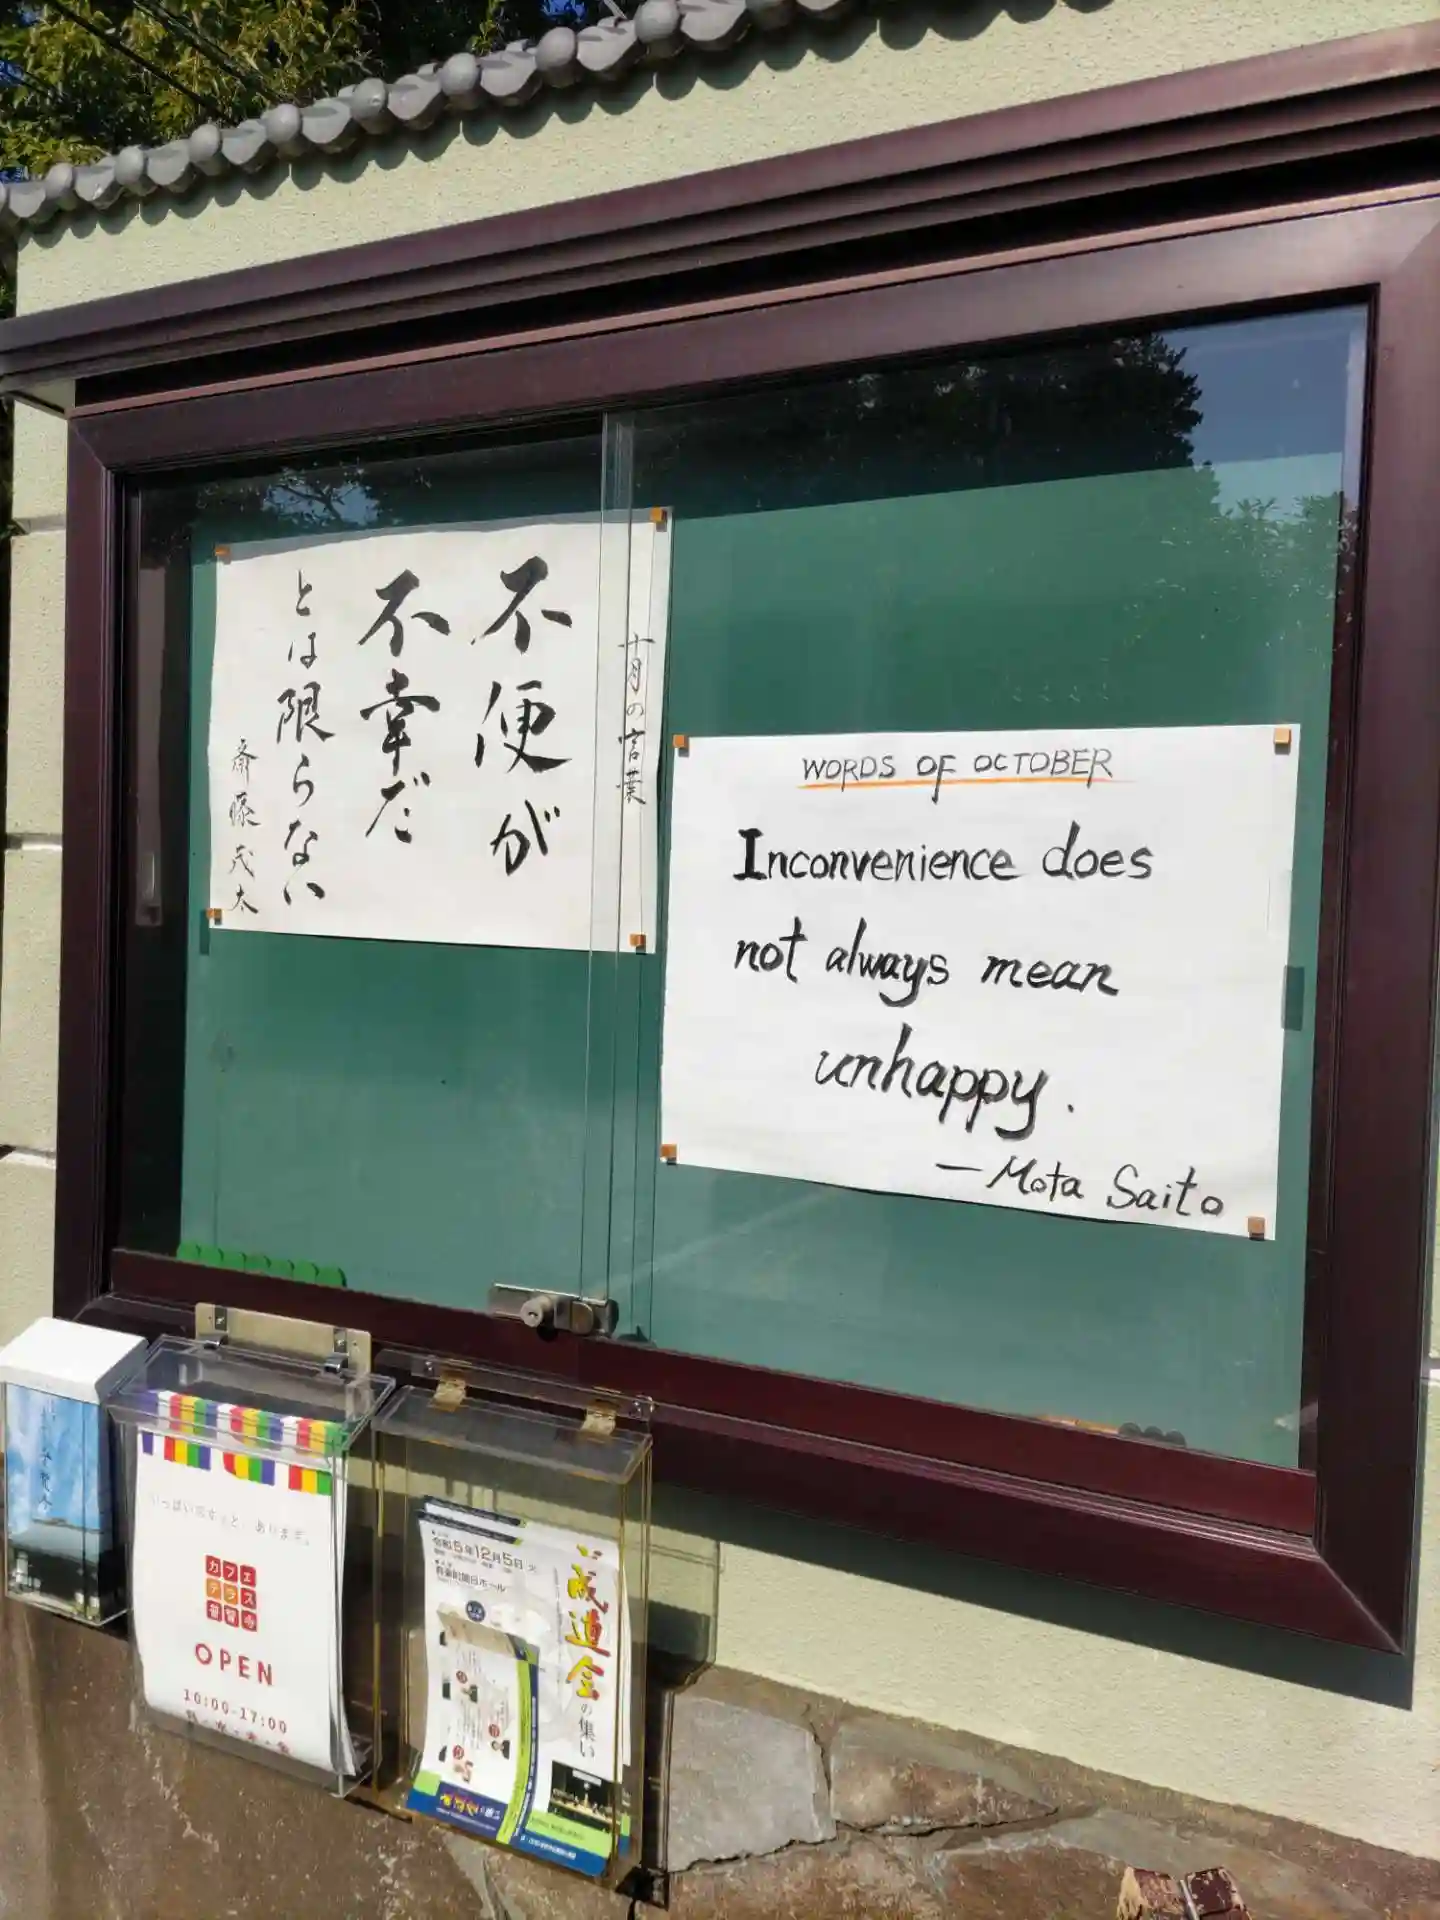 十月の言葉
不便が
不幸だ
とは限らない
斎藤茂太
WORDS OF OCTOBER
Inconvenience does
not always mean
unhappy.
—Mota Saito
いっぱいのすっと、あります。
カフェ
テラス
OPEN
10:00-17:00
令和5年12月5日
有楽町朝日ホール
成道会の集い